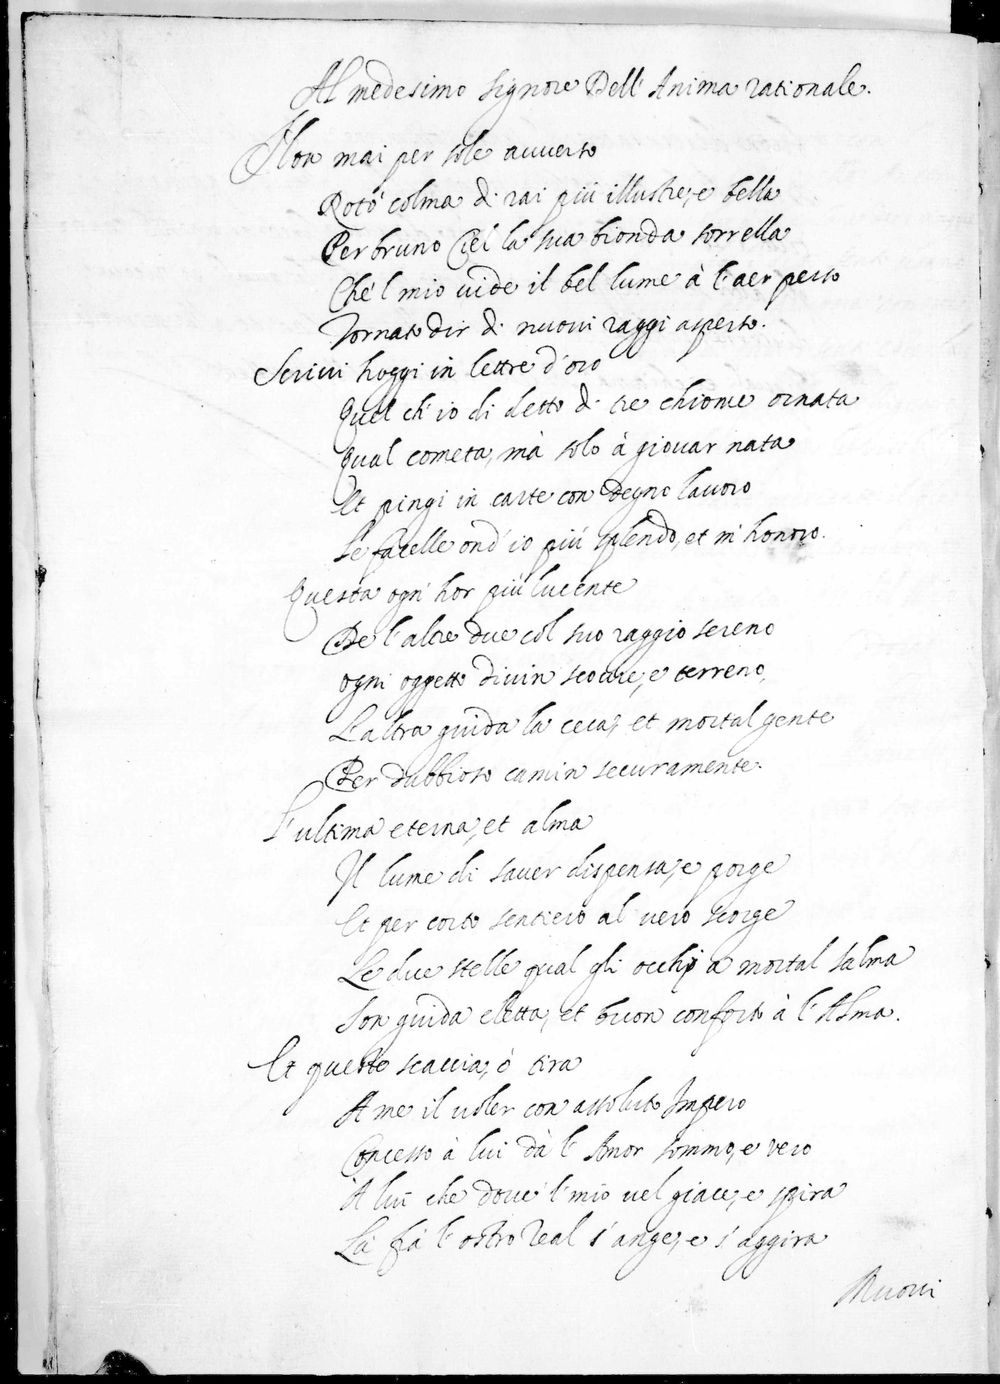 Al medesimo Signore Dell' Anima rationale.
Non mai per sole avverso
Rotò colma di rai più illustre, e bella
Per bruno Ciel la sua bionda sorrella
Che'l mio vide il bel lume à l'aer perso
Tornato dir di nuovi raggi asperso.
Scrivi hoggi in lettre d'oro
Quel ch'io di detto di tre chiome ornata
Qual cometa, mà solo à giovar nata
Et pingi in carte con degno lavoro
Le facelle ond'io più splendo, et m'honoro.
Questa ogni hor più lucente
De l'altre due col suo raggio sereno
ogni oggetto divin scovre, e terreno,
L'altra guida la ceca, et mortal gente
Per dubbioso camin securamente.
L'ultima eterna, et alma
Il lume di saver dispensa, e porge
Et per corto sentiero al vero scorge
Le due stelle qual gli occhi a mortal salma
Son guida eletta, et buon conforto à l'Alma.
Et questo scaccia, ò tira
A me il voler con assoluto Impero
Concesso à lui dà l'Amor sommo, e vero
A lui che dove'l mio vel giace, e spira
Là fà l'ostro Real s'ange, e s'aggira
Nuovi